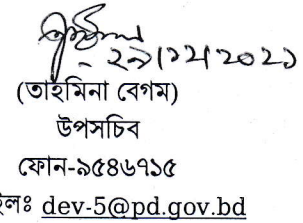 ২৯।১২।২০২১
(তাহমিনা বেগম)
উপসচিব
ফোন-৯৫৪৬৭১৫
ইলঃ dev-5@pd.gov.bd